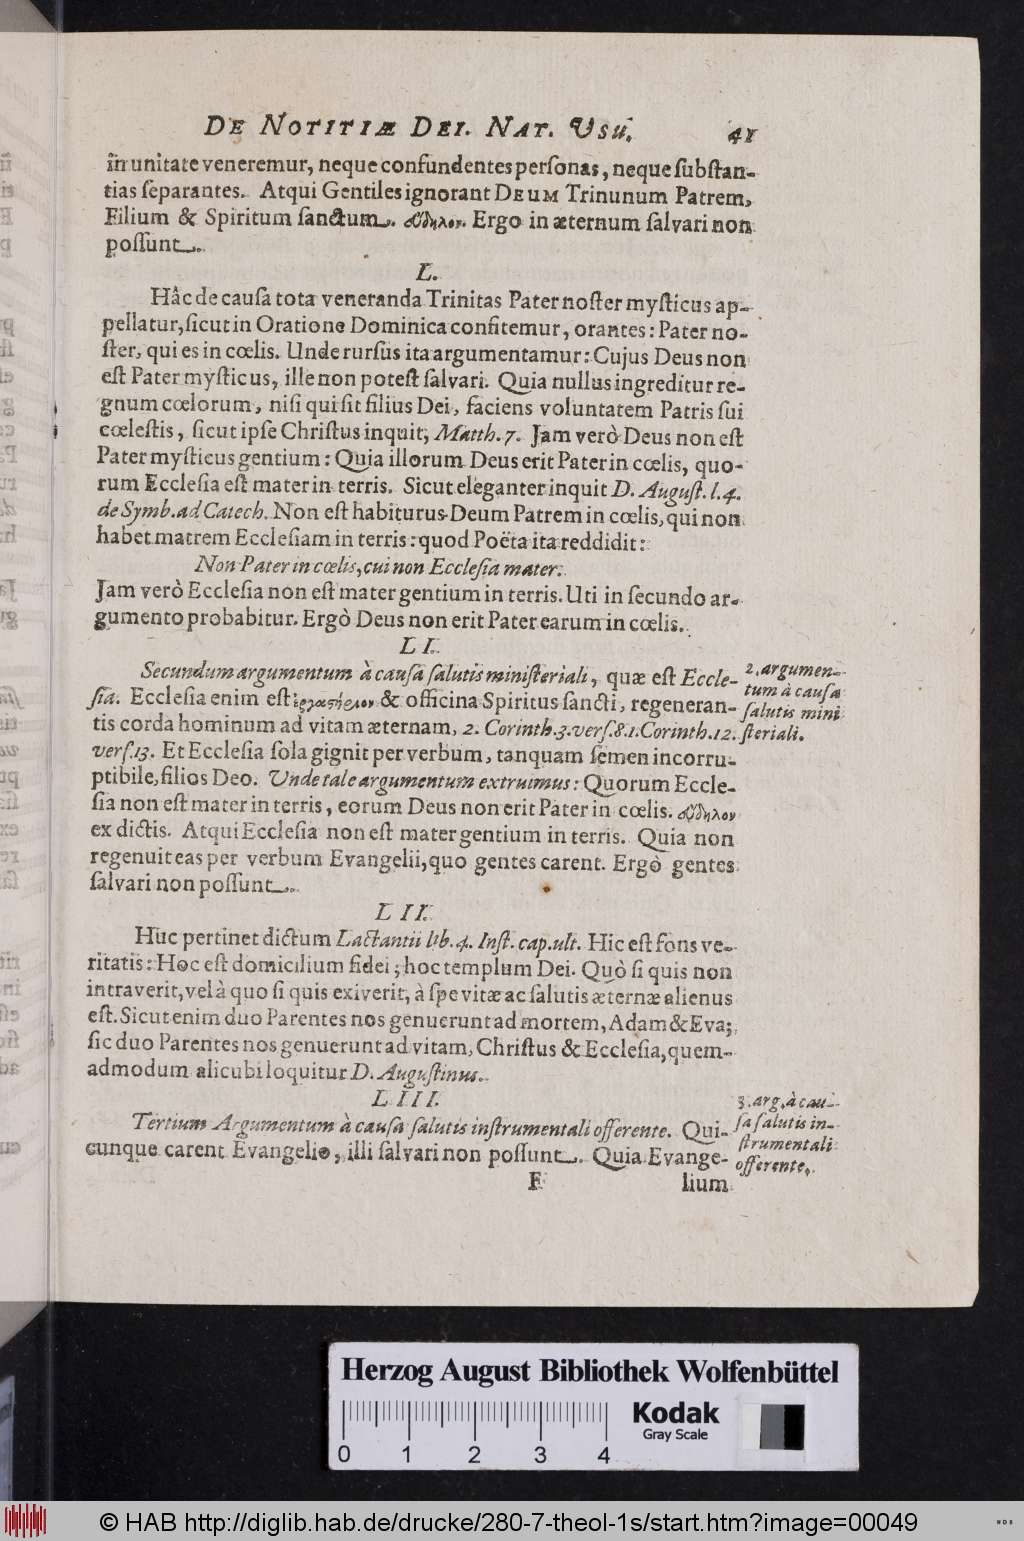 DE NOTITIÆ DEI. NAT. USU. 41
in unitate veneremur, neque confundentes perſonas, neque ſubſtan-
tias ſeparantes. Atqui Gentiles ignorant DEUM Trinunum Patrem,
Filium & Spiritum ſanctum. Ergo in æternum ſalvari non
poſſunt.
L.
Hâc de cauſa tota veneranda Trinitas Pater noſter myſticus ap-
pellatur, ſicut in Oratione Dominica confitemur, orantes: Pater no-
ſter, qui es in cœlis. Unde rurſus ita argumentamur: Cujus Deus non
eſt Pater myſticus, ille non poteſt ſalvari. Quia nullus ingreditur re-
gnum cœlorum, niſi qui ſit filius Dei, faciens voluntatem Patris ſui
cœleſtis, ſicut ipſe Chriſtus inquit, Matth. 7. Jam verò Deus non eſt
Pater myſticus gentium: Quia illorum Deus erit Pater in cœlis, quo-
rum Eccleſia eſt mater in terris. Sicut eleganter inquit D. Auguſt. l. 4.
de Symb. ad Catech. Non eſt habiturus Deum Patrem in cœlis, qui non
habet matrem Eccleſiam in terris: quod Poëta ita reddidit:
Non Pater in cœlis, cui non Eccleſia mater.
Jam verò Eccleſia non eſt mater gentium in terris. Uti in ſecundo ar-
gumento probabitur. Ergò Deus non erit Pater earum in cœlis.
LI.
Secundum argumentum à cauſa ſalutis miniſteriali, quæ eſt Eccle-
ſia. Eccleſia enim eſt ἐργαστήριον & officina Spiritus ſancti, regeneran-
tis corda hominum ad vitam æternam, 2. Corinth. 3. verſ. 8. 1. Corinth. 12.
verſ. 13. Et Eccleſia ſola gignit per verbum, tanquam ſemen incorru-
ptibile, filios Deo. Unde tale argumentum extruimus: Quorum Eccle-
ſia non eſt mater in terris, eorum Deus non erit Pater in cœlis.
ex dictis. Atqui Eccleſia non eſt mater gentium in terris. Quia non
regenuit eas per verbum Evangelii, quo gentes carent. Ergò gentes
ſalvari non poſſunt.
2. argumen-
tum à cauſa
ſalutis mini
ſteriali.
LII.
Huc pertinet dictum Lactantii lib. 4. Inſt. cap. ult. Hic eſt fons ve-
ritatis: Hoc eſt domicilium fidei; hoc templum Dei. Quò ſi quis non
intraverit, vel à quo ſi quis exiverit, à ſpe vitæ ac ſalutis æternæ alienus
eſt. Sicut enim duo Parentes nos genuerunt ad mortem, Adam & Eva;
ſic duo Parentes nos genuerunt ad vitam, Chriſtus & Eccleſia, quem-
admodum alicubi loquitur D. Auguſtinus.
LIII.
Tertium Argumentum à cauſa ſalutis inſtrumentali offerente. Qui-
cunque carent Evangelio, illi ſalvari non poſſunt. Quia Evange-
3. arg. à cau-
ſa ſalutis in-
ſtrumentali
offerente.
F lium
Herzog August Bibliothek Wolfenbüttel
0 1 2 3 4
Kodak
Gray Scale
© HAB http://diglib.hab.de/drucke/280-7-theol-1s/start.htm?image=00049